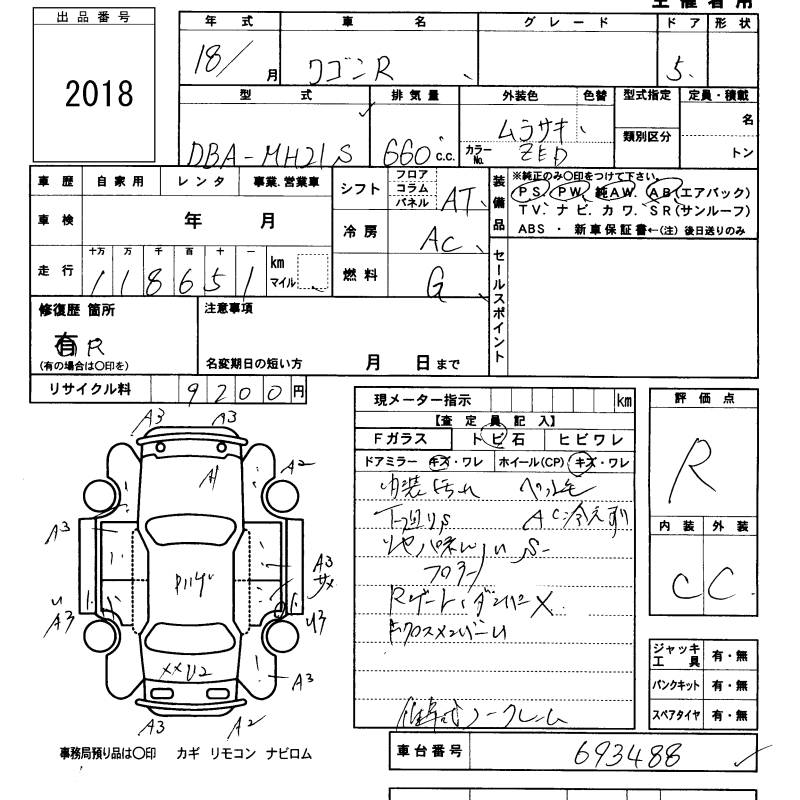 主催者用
出品番号
2018
年式 車名 グレード ドア 形状
18/ 月 ワゴンR 5
型式 排気量 外装色 色替 型式指定 定員・積載
DBA-MH21S 660 c.c. ムラサキ
カラーNo. ZED 類別区分 名
トン
車歴 自家用 レンタ 事業.営業車
シフト フロア コラム パネル AT
装備品
※純正のみ〇印をつけて下さい。
PS. PW. 純AW. AB(エアバック)
TV. ナビ. カワ. SR(サンルーフ)
ABS ・ 新車保証書←(注) 後日送りのみ
車検 年 月
冷房 AC
走行 十万 万 千 百 十 一 km マイル
118651
燃料 G
セールスポイント
修復歴 箇所
有 R
(有の場合は〇印を)
注意事項
名変期日の短い方 月 日まで
リサイクル料 9200円
現メーター指示 km
【査定員記入】
Fガラス トビ石 ヒビワレ
ドアミラー キズ・ワレ ホイール(CP) キズ・ワレ
内装
AC冷えず
フロアー
Rゲートダンパー×
評価点
R
内装 外装
C C
ジャッキ工具 有・無
パンクキット 有・無
スペアタイヤ 有・無
A3 A3
A1 A2
A3
A3
A3
A3
A3 A2
事務局預り品は〇印 カギ リモコン ナビロム
車台番号 693488